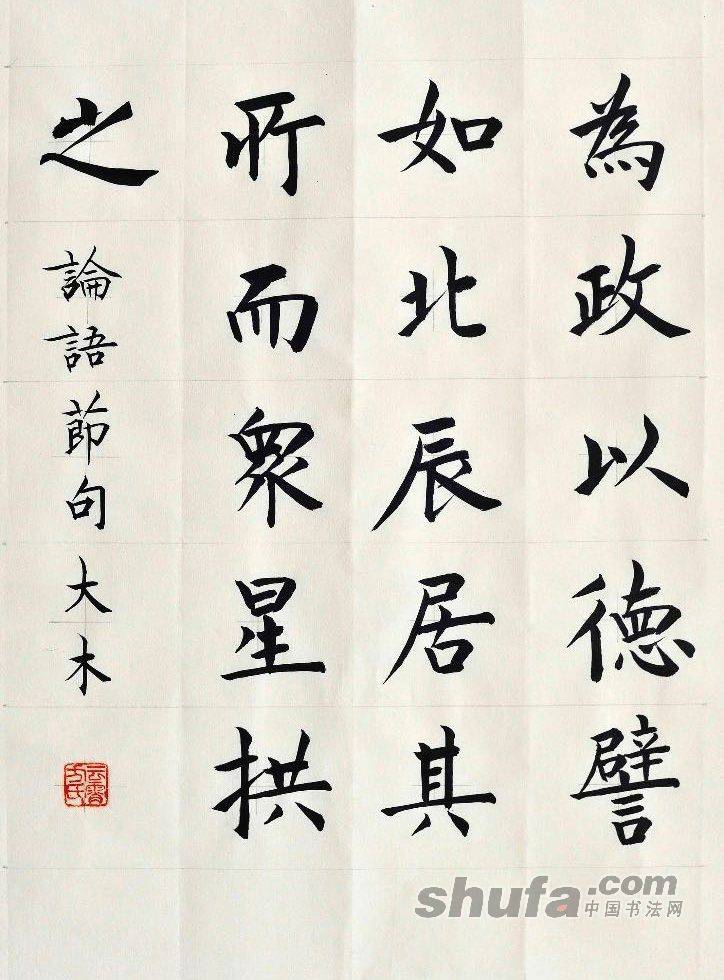 為政以德譬
如北辰居其
所而眾星拱
之
論語節句大木
shufa.com
中国书法网